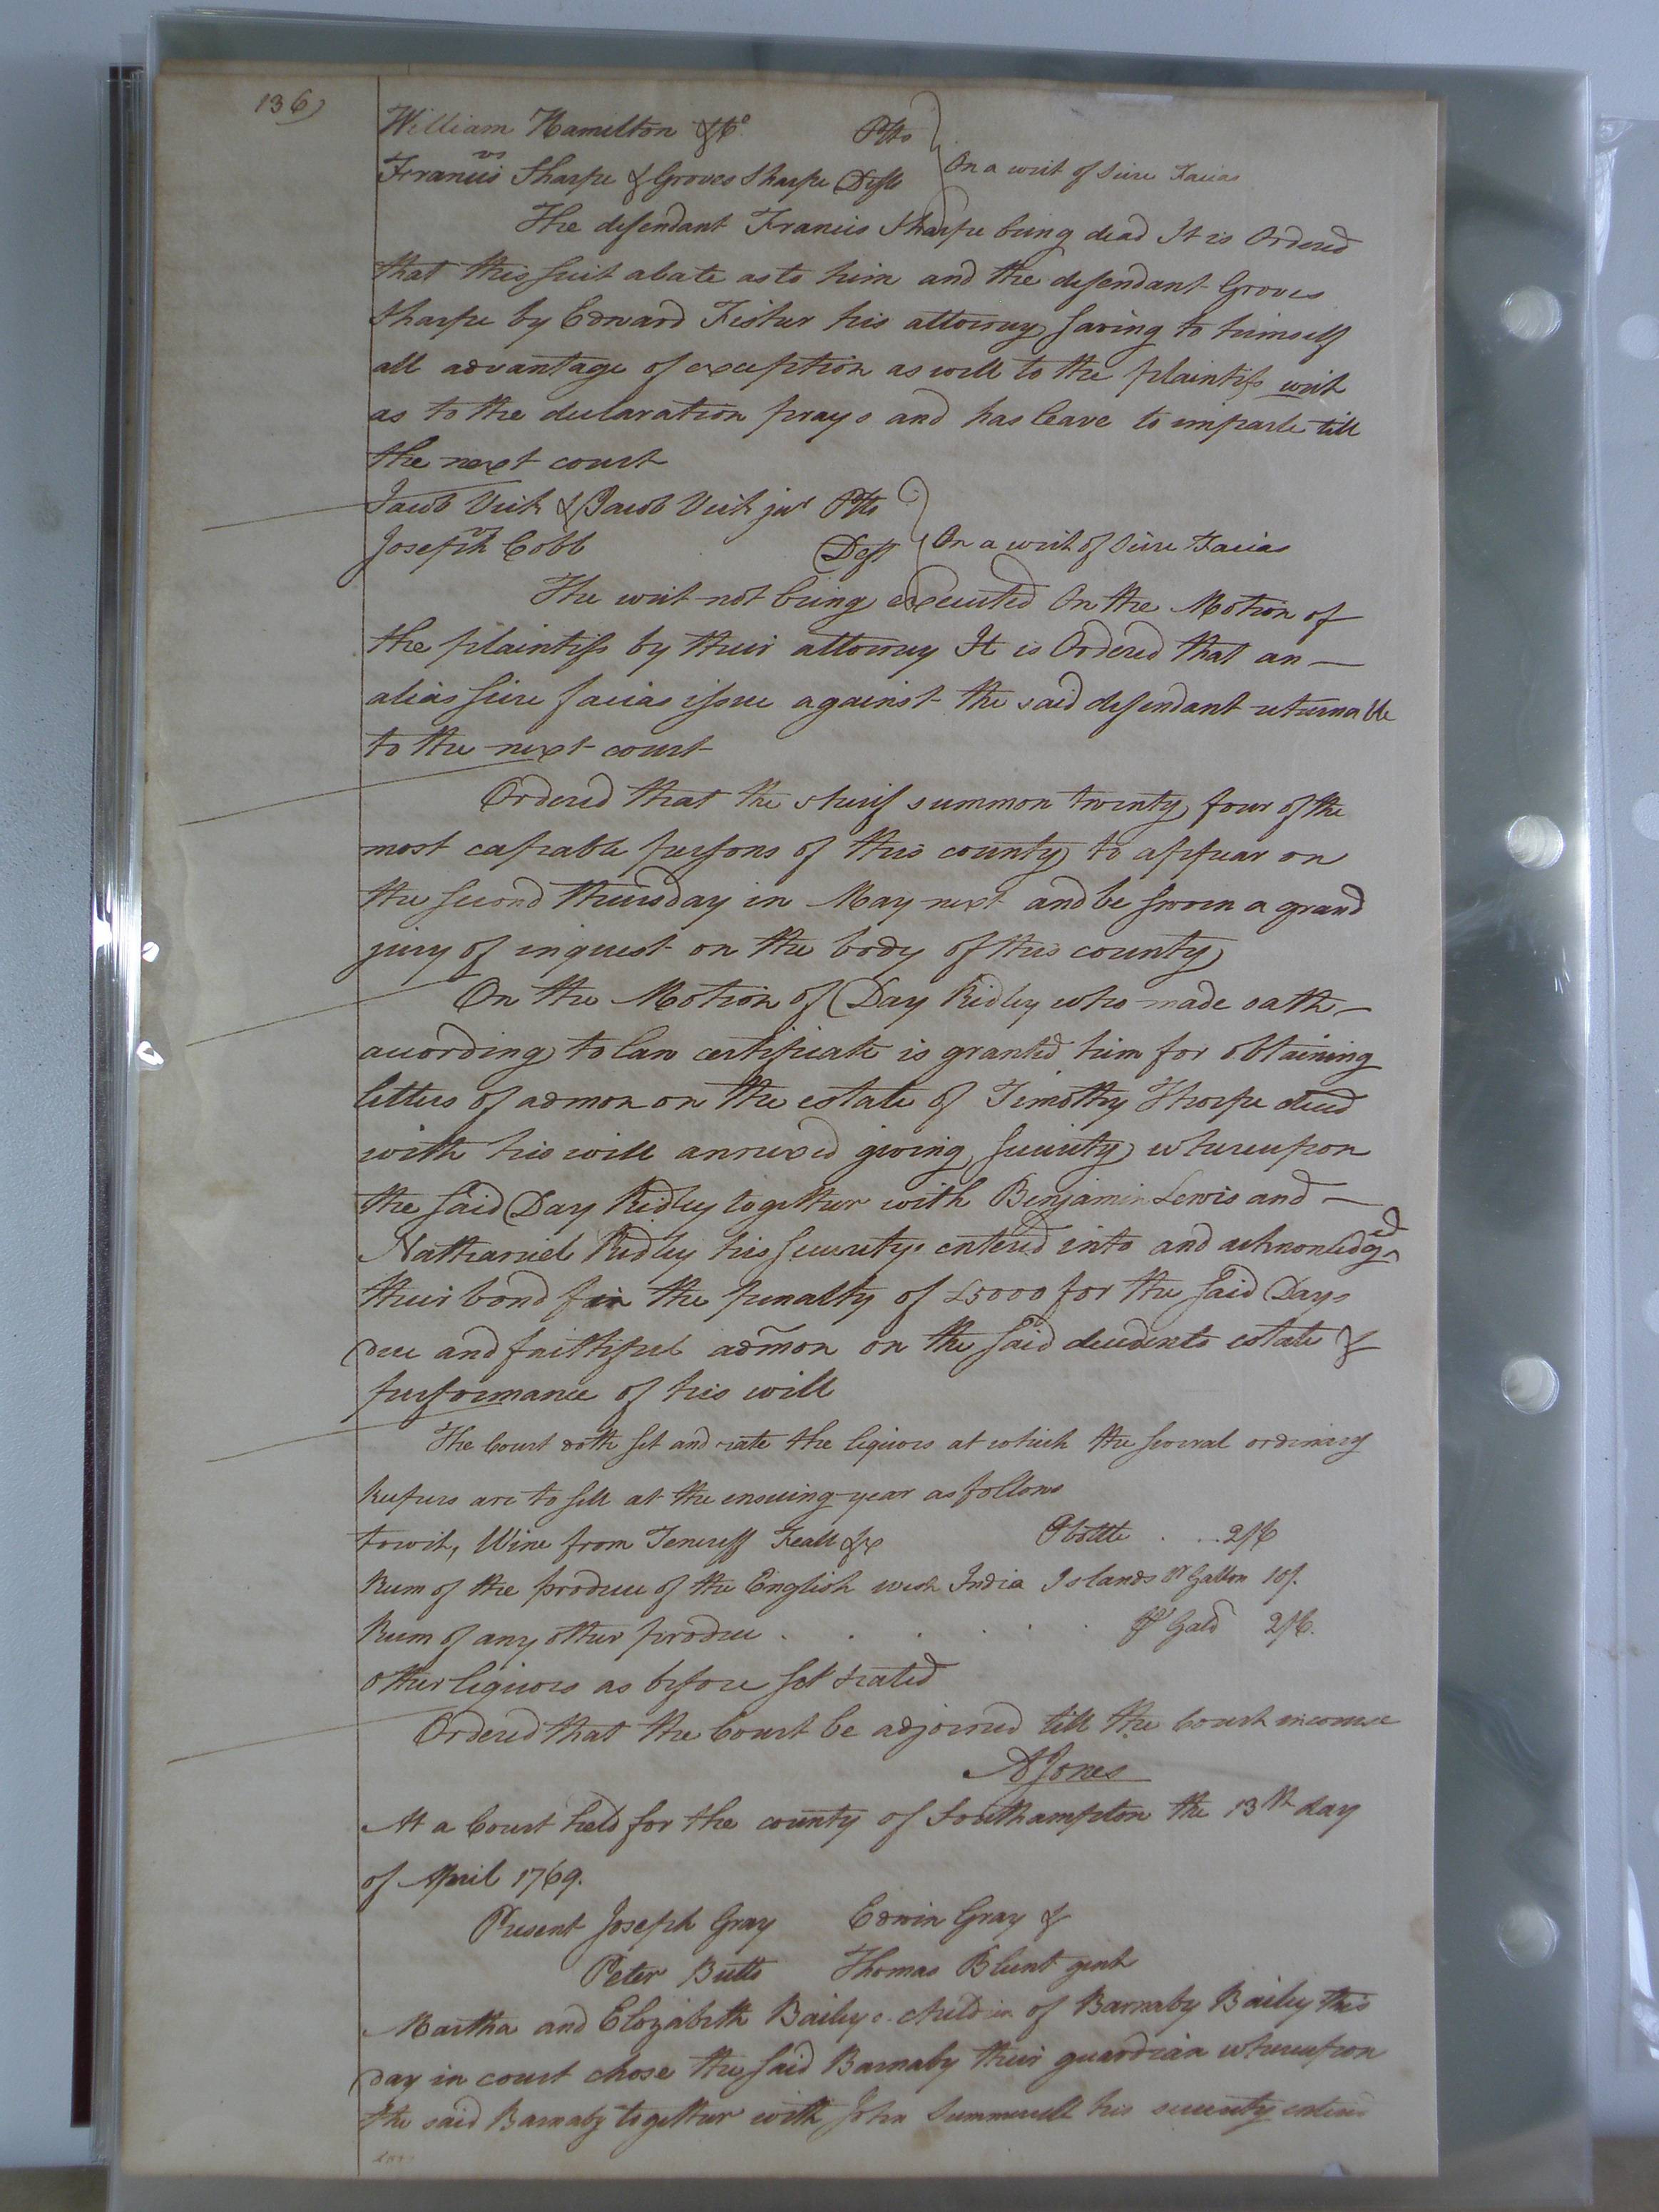 136)
William Hamilton & Co. Plts
vs
Francis Sharpe & Groves Sharpe Defts } On a writ of Scire Facias
The defendant Francis Sharpe being dead It is Ordered
that this suit abate as to him and the defendant Groves
Sharpe by Edward Fisher his attorney saving to himself
all advantage of exception as well to the plaintifs writ
as to the declaration prays and has leave to imparle till
the next court
Jacob Vick & Jacob Vick junr Plts
vs
Joseph Cobb Deft } On a writ of Scire Facias
The writ not being executed On the Motion of
the plaintifs by their attorney It is Ordered that an
alias scire facias issue against the said defendant returnable
to the next court
Ordered that the sherif summon twenty four of the
most capable persons of this county to appear on
the second thursday in May next and be sworn a grand
jury of inquest on the body of this county
On the Motion of Day Ridley who made oath
according to law certificate is granted him for obtaining
letters of admon on the estate of Timothy Thorpe decd
with his will annexed giving security whereupon
the said Day Ridley together with Benjamin Lewis and
Nathaniel Ridley his security entered into and acknowledged
their bond in the penalty of £5000 for the said Days
due and faithful admon on the said decedents estate &
performance of his will
The Court doth set and rate the liquors at which the several ordinary
Keepers are to sell at the ensuing year as follows
towit, Wine from Teneriff Feall &c P bottle . . . 2/6
Rum of the produce of the English west India Islands Pr Gallon 10/.
Rum of any other produce . . . . . . Pr Galo 2/6.
other liquors as before set & rated
Ordered that the Court be adjorned till the Court in course
A Jones
At a Court held for the county of Southampton the 13th day
of April 1769.
Present Joseph Gray Edwin Gray &
Peter Butts Thomas Blunt gent
Martha and Elizabeth Bailey children of Barnaby Bailey this
day in court chose the said Barnaby their guardian whereupon
the said Barnaby together with John Summerell his security entered